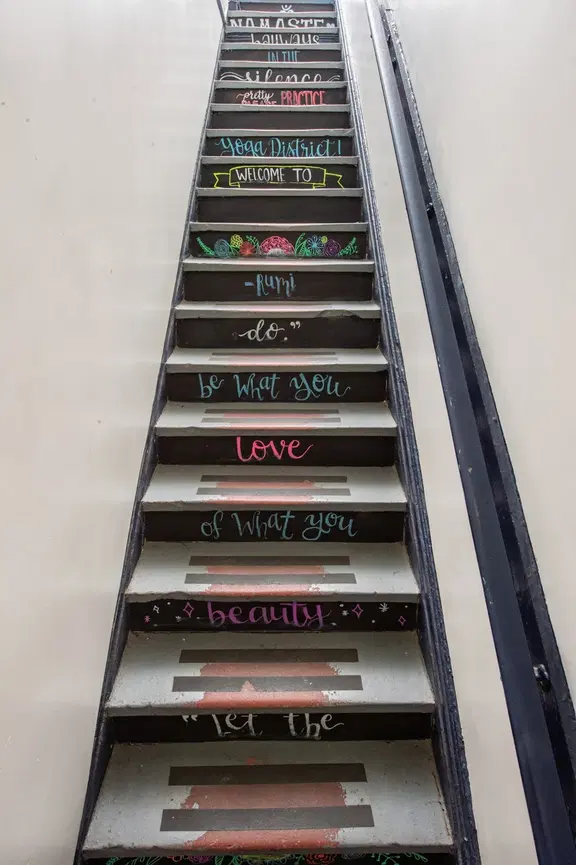 “Let the
beauty
of What you
love
be What you
do.”
-Rumi
WELCOME TO
Yoga District!
pretty PLEASE PRACTICE
silence
IN THE
hallways
NAMASTE